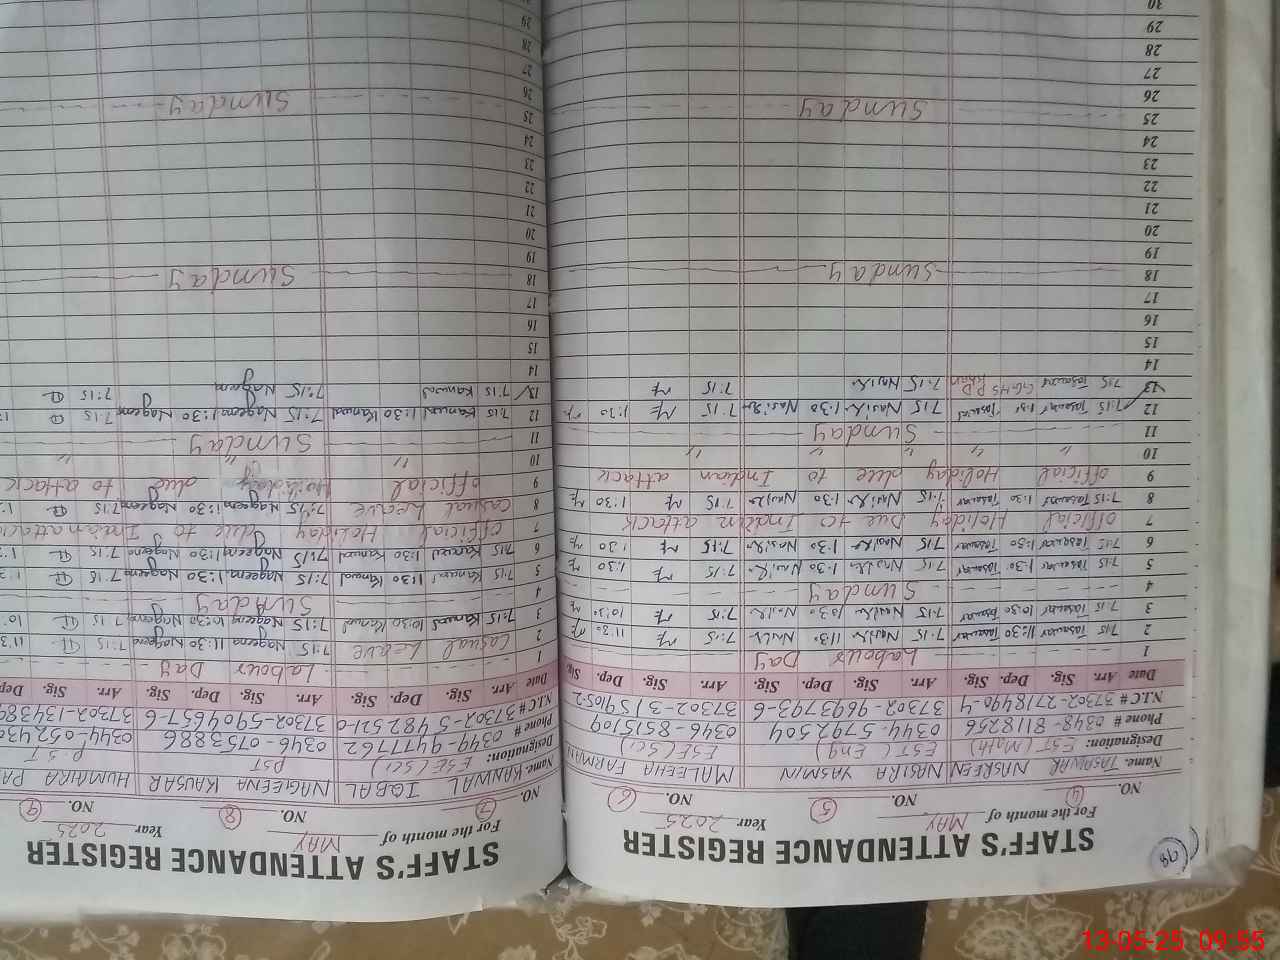 98
STAFF'S ATTENDANCE REGISTER
For the month of MAY Year 2025
NO. 4 NO. 5 NO. 6
Name. TASAWAR NASREEN NASIRA YASMIN MALEEHA FARMAN
Designation: EST (Math) EST (Eng) ESE (Sci)
Phone # 0348-8118256 0344-5792504 0346-8515109
N.I.C # 37302-2718490-4 37302-9693793-6 37302-3159105-2
Date Arr. Sig. Dep. Sig. Arr. Sig. Dep. Sig. Arr. Sig. Dep. Sig.
1 Labour Day
2 7:15 Tasawar 11:30 Tasawar 7:15 11:30 7:15 11:30
3 7:15 Tasawar 10:30 Tasawar 7:15 10:30 7:15 10:30
4 Sunday
5 7:15 Tasawar 1:30 Tasawar 7:15 1:30 7:15 1:30
6 7:15 Tasawar 1:30 Tasawar 7:15 1:30 7:15 1:30
7 official Holiday Due to Indian attack
8 7:15 Tasawar 1:30 Tasawar 7:15 1:30 7:15 1:30
9 official Holiday due to Indian attack
10 " " "
11 Sunday
12 7:15 Tasawar 1:30 Tasawar 7:15 1:30 7:15 1:30
13 7:15 Tasawar 7:15 7:15
14
15
16
17
18 Sunday
19
20
21
22
23
24
25 Sunday
26
27
28
29
30
STAFF'S ATTENDANCE REGISTER
For the month of MAY Year 2025
NO. 7 NO. 8 NO. 9
Name. KANWAL IQBAL NAGEENA KAUSAR HUMAIRA
Designation: ESE (Sci) PST P.S.T
Phone # 0349-9477762 0346-0753886
N.I.C # 37302-5482551-0 37302-5904657-6
Date Arr. Sig. Dep. Sig. Arr. Sig. Dep. Sig. Arr. Sig. Dep.
1 Labour Day
2 Casual Leave 7:15 Nageena 11:30 Nageena 7:15
3 7:15 Kanwal 10:30 Kanwal 7:15 Nageena 10:30 Nageena 7:15
4 Sunday
5 7:15 Kanwal 1:30 Kanwal 7:15 Nageena 1:30 Nageena 7:15
6 7:15 Kanwal 1:30 Kanwal 7:15 Nageena 1:30 Nageena 7:15
7 official Holiday due to Indian attack
8 Casual Leave 7:15 Nageena 1:30 Nageena 7:15
9 official Holiday due to attack
10 " " "
11 Sunday
12 7:15 Kanwal 1:30 Kanwal 7:15 Nageena 1:30 Nageena 7:15
13 7:15 Kanwal 7:15 Nageena 7:15
14
15
16
17
18 Sunday
19
20
21
22
23
24
25 Sunday
26
27
28
29
13-05-25 09:55